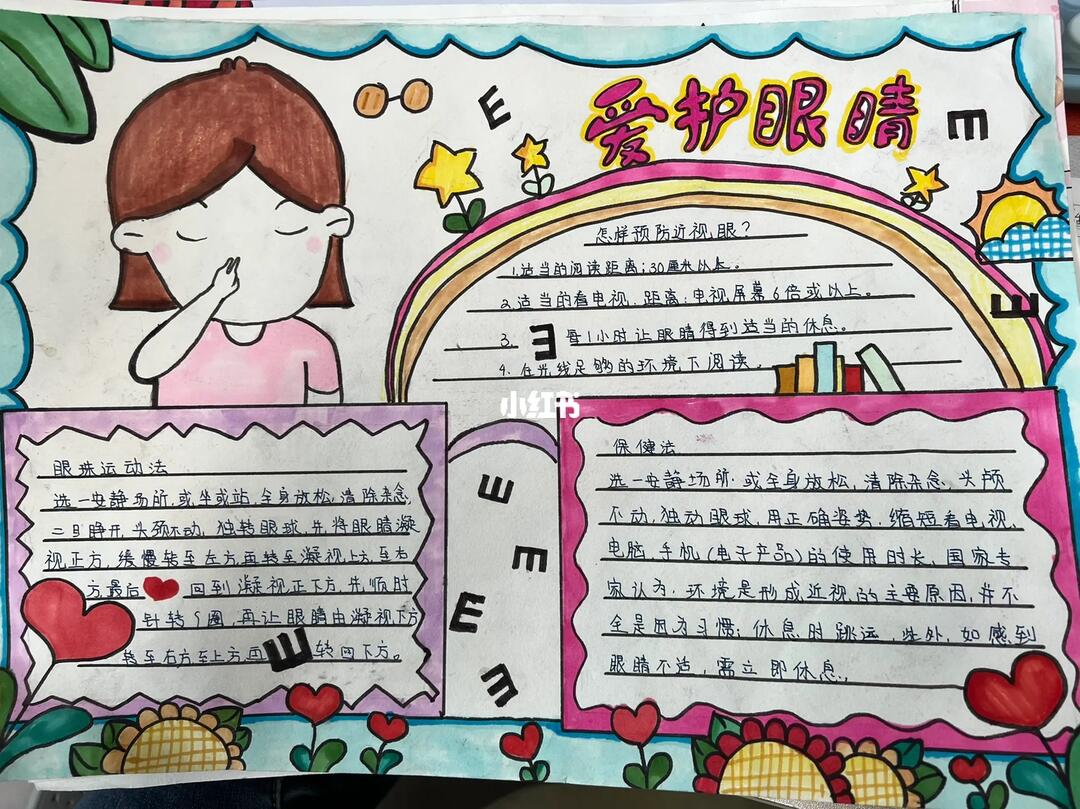 爱护眼睛
E
E
E
怎样预防近视眼?
1.适当的阅读距离:30厘米以上。
2.适当的看电视,距离,电视屏幕6倍或以上。
3. E 每1小时让眼睛得到适当的休息。
4.在光线足够的环境下阅读。
小红书
眼珠运动法
选一安静场所,或坐或站,全身放松,清除杂念,
二目睁开,头颈不动,独转眼球,先将眼睛凝
视正方,缓慢转至左方,再转至凝视上方,至右
方最后 回到凝视正下方,先顺时
针转 圈,再让眼睛由凝视下方
转至右方至上方,再 E 转回下方。
E
E
E
E
保健法
选一安静场所,或全身放松,清除杂念,头颅
不动,独动眼球,用正确姿势,缩短看电视,
电脑,手机(电子产品)的使用时长,国家专
家认为,环境是形成近视的主要原因,并不
全是因为习惯;休息时跳远,些外,如感到
眼睛不适,需立即休息。